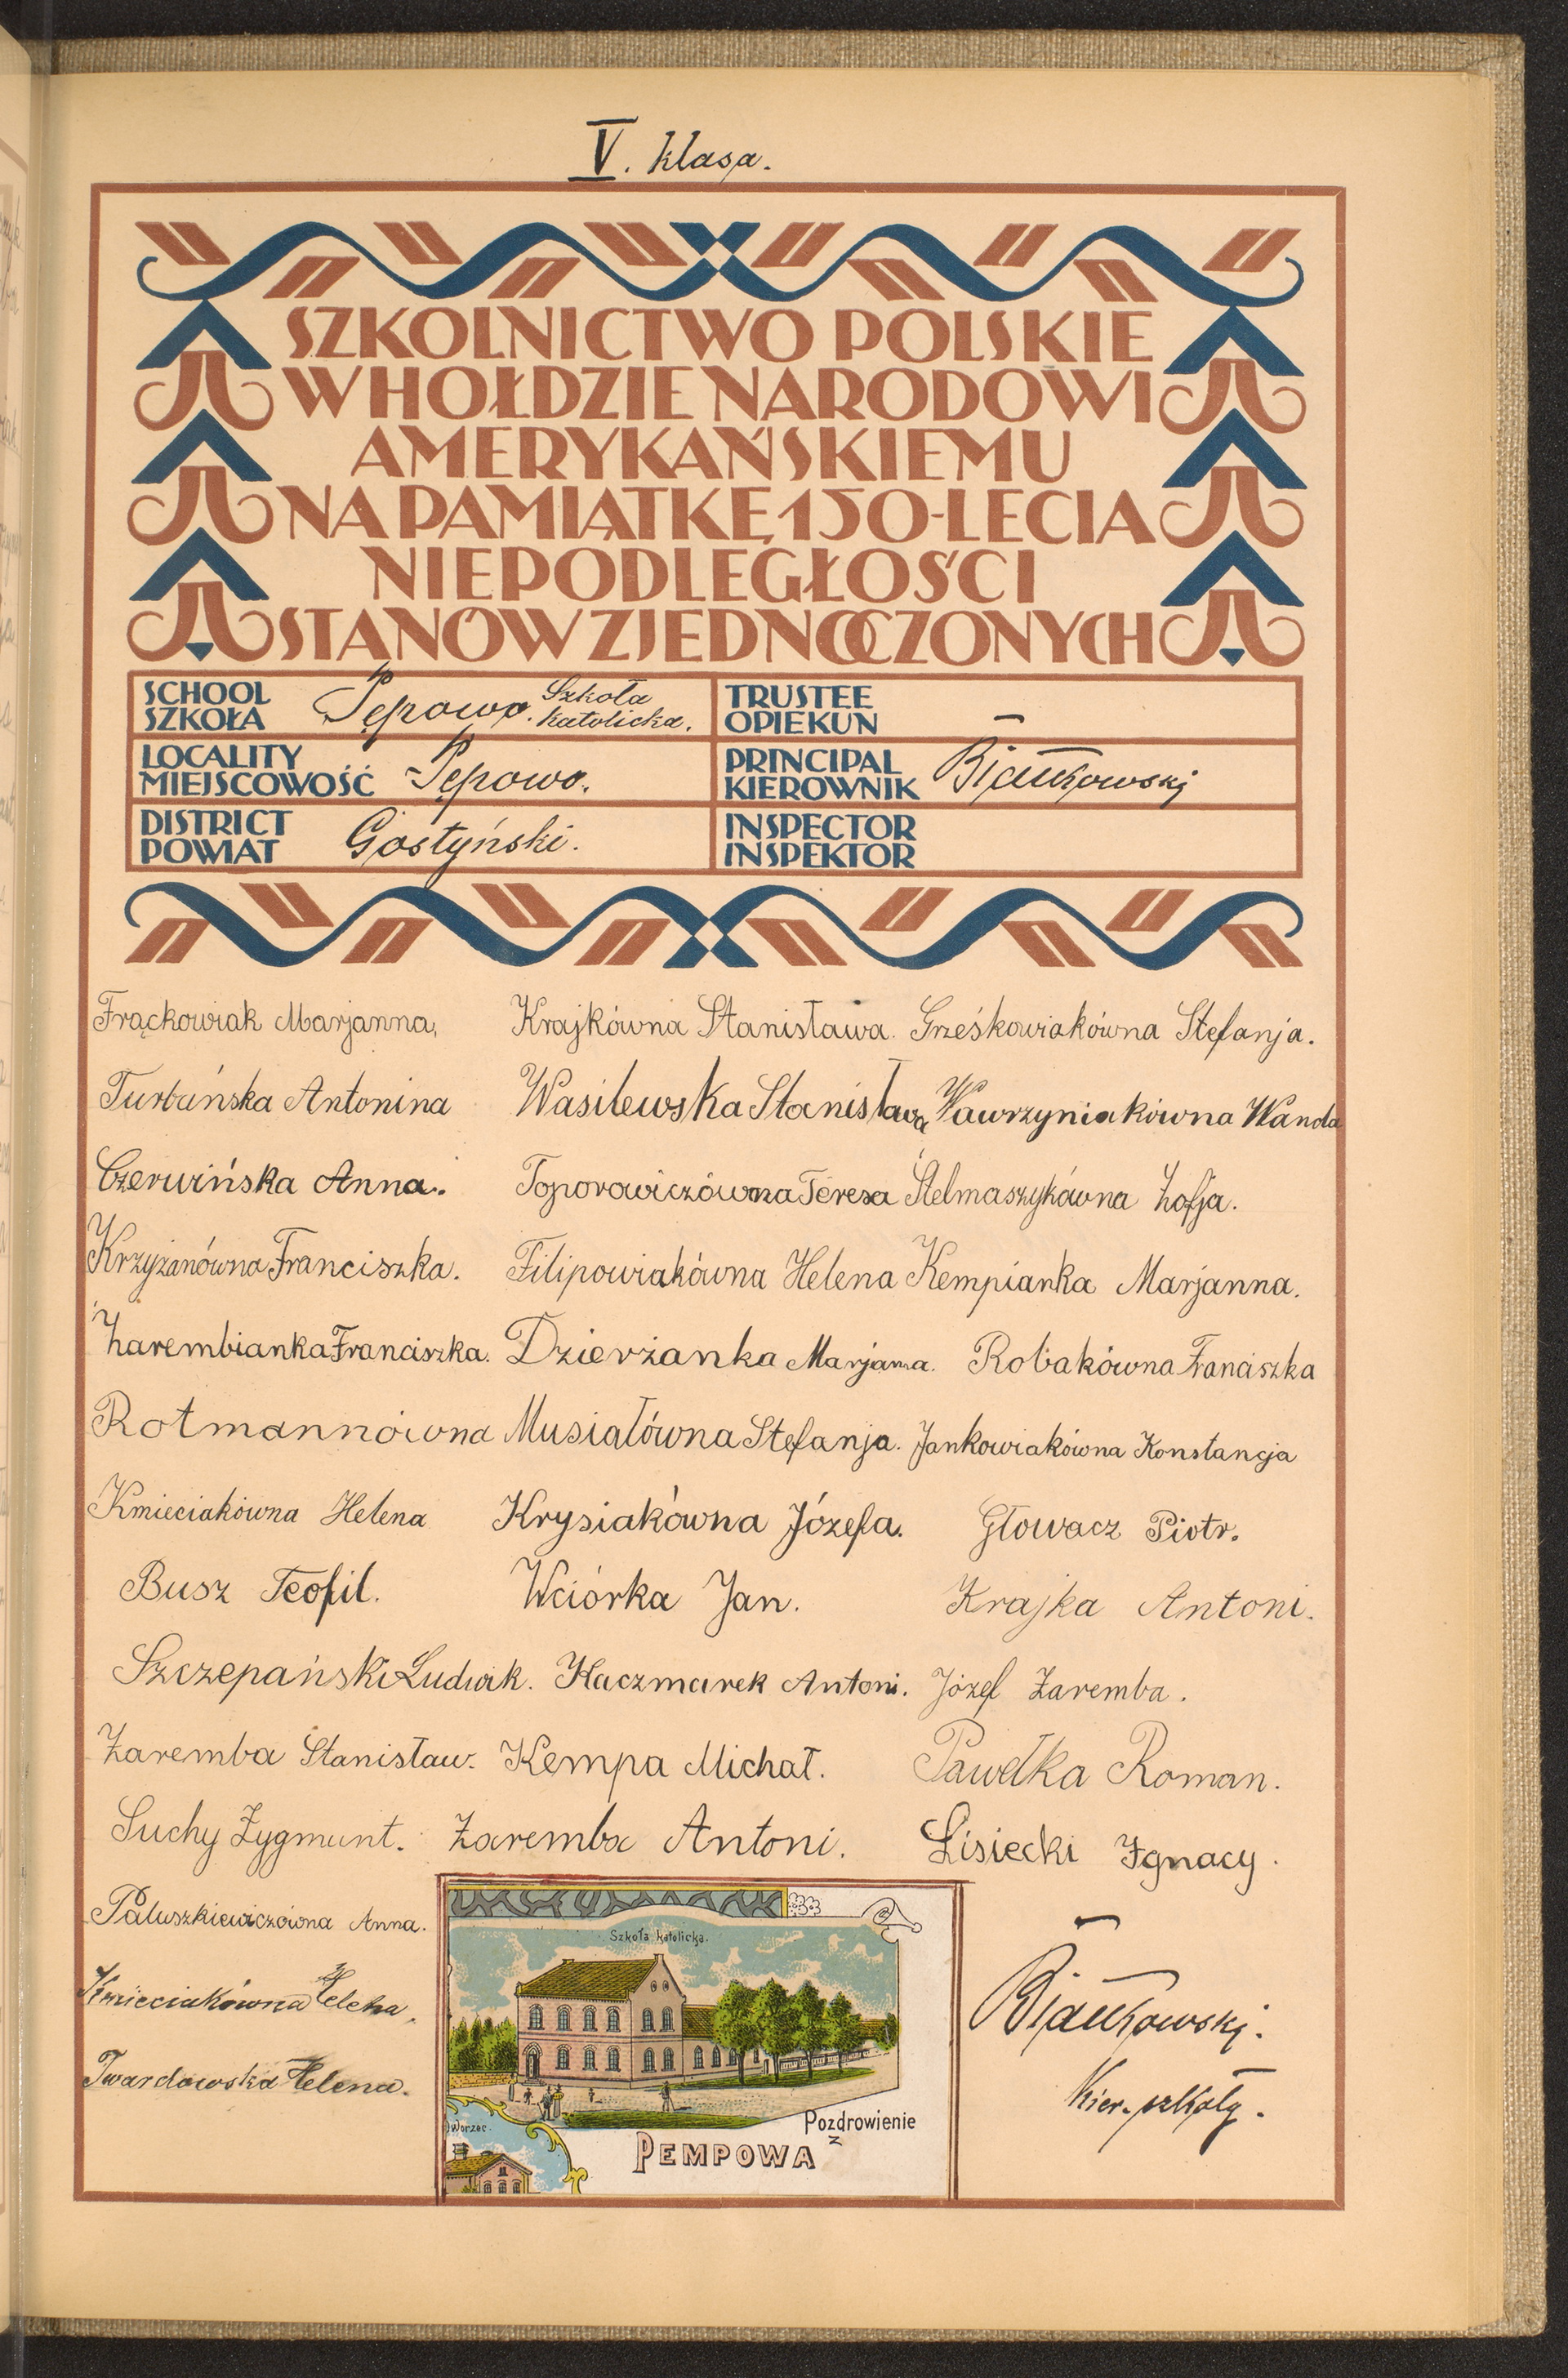 V. klasa.
SZKOLNICTWO POLSKIE
W HOŁDZIE NARODOWI
AMERYKAŃSKIEMU
NA PAMIĄTKĘ 150-LECIA
NIEPODLEGŁOŚCI
STANÓW ZJEDNOCZONYCH
SCHOOL
SZKOŁA
Pępowo. Szkoła
katolicka.
TRUSTEE
OPIEKUN
—
LOCALITY
MIEJSCOWOŚĆ
Pępowo.
PRINCIPAL
KIEROWNIK
DISTRICT
POWIAT
Gostyński.
INSPECTOR
INSPEKTOR
Frąckowiak Marjanna, Krajkówna Stanisława. Grześkowiakówna Stefanja.
Turbańska Antonina Wasilewska Stanisława Wawrzyniakówna Wanda
Czerwińska Anna. Toporowiczówna Teresa Stelmaszykówna Zofja.
Krzyżanówna Franciszka. Filipowiakówna Helena Kempianka Marjanna.
Zarembianka Franciszka. Dzierżanka Marjanna. Robakówna Franciszka
Rotmannówna Musiałówna Stefanja. Jankowiakówna Konstancja
Kmieciakówna Helena Krysiakówna Józefa. Głowacz Piotr.
Busz Teofil. Wciórka Jan. Krajka Antoni.
Szczepański Ludwik. Kaczmarek Antoni. Józef Zaremba.
Zaremba Stanisław. Kempa Michał. Pawełka Roman.
Suchy Zygmunt. Zaremba Antoni. Lisiecki Ignacy.
Paluszkiewiczówna Anna.
Kmieciakówna Helena,
Twardowska Helena.
Szkoła katolicka.
Dworzec.
Pozdrowienie
z
PEMPOWA
Kier. szkoły.